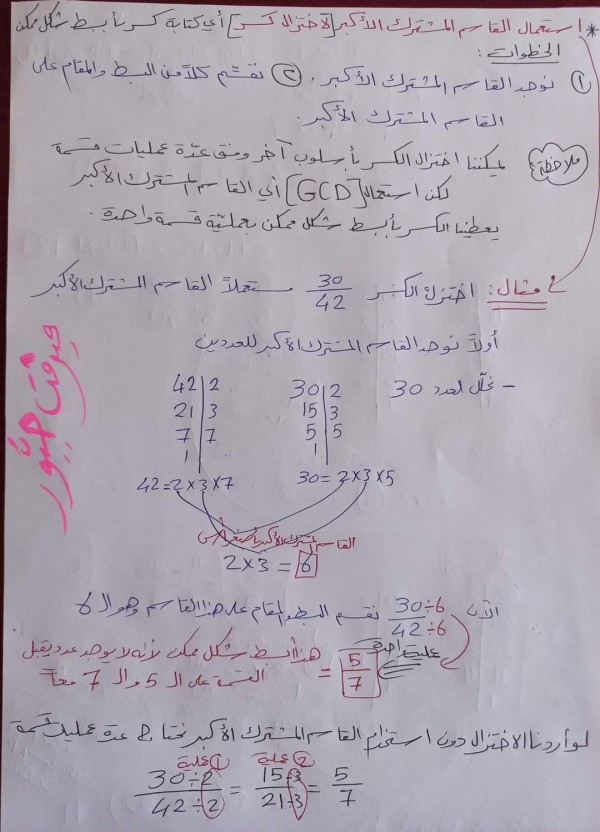 * استعمال القاسم المشترك الأكبر [لاختزال كسر] أي كتابة كسر بأبسط شكل ممكن
الخطوات:
① نوجد القاسم المشترك الأكبر. ② نقسم كلاً من البسط والمقام على
القاسم المشترك الأكبر.
ملاحظة
يمكننا اختزال الكسر بأسلوب آخر وفق عدّة عمليات قسمة
لكن استعمال [GCD] أي القاسم المشترك الأكبر
يعطينا الكسر بأبسط شكل ممكن بعمليّة قسمة واحدة.
مثال: اختزل الكسر 30/42 مستعملاً القاسم المشترك الأكبر
أولاً نوجد القاسم المشترك الأكبر للعددين
- نحلّل لعدد 30
30 | 2
15 | 3
5 | 5
1
30 = 2 x 3 x 5
42 | 2
21 | 3
7 | 7
1
42 = 2 x 3 x 7
القاسم المشترك الأكبر بأصغر أس
2 x 3 = 6
الآن 30÷6/42÷6 نقسم البسط والمقام على هذا القاسم وهو الـ 6
عملية واحدة
= 5/7 هذا أبسط شكل ممكن لأنه لا يوجد عدد يقبل
القسمة على الـ 5 والـ 7 معاً
لو أردنا الاختزال دون استخدام القاسم المشترك الأكبر نحتاج عدة عمليات قسمة
عملية ① عملية ②
30÷2/42÷2 = 15÷3/21÷3 = 5/7